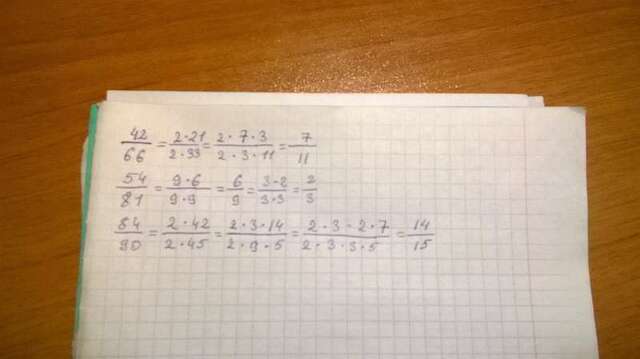 42/66 = 2·21/2·33 = 2·7·3/2·3·11 = 7/11
54/81 = 9·6/9·9 = 6/9 = 3·2/3·3 = 2/3
84/90 = 2·42/2·45 = 2·3·14/2·9·5 = 2·3·2·7/2·3·3·5 = 14/15